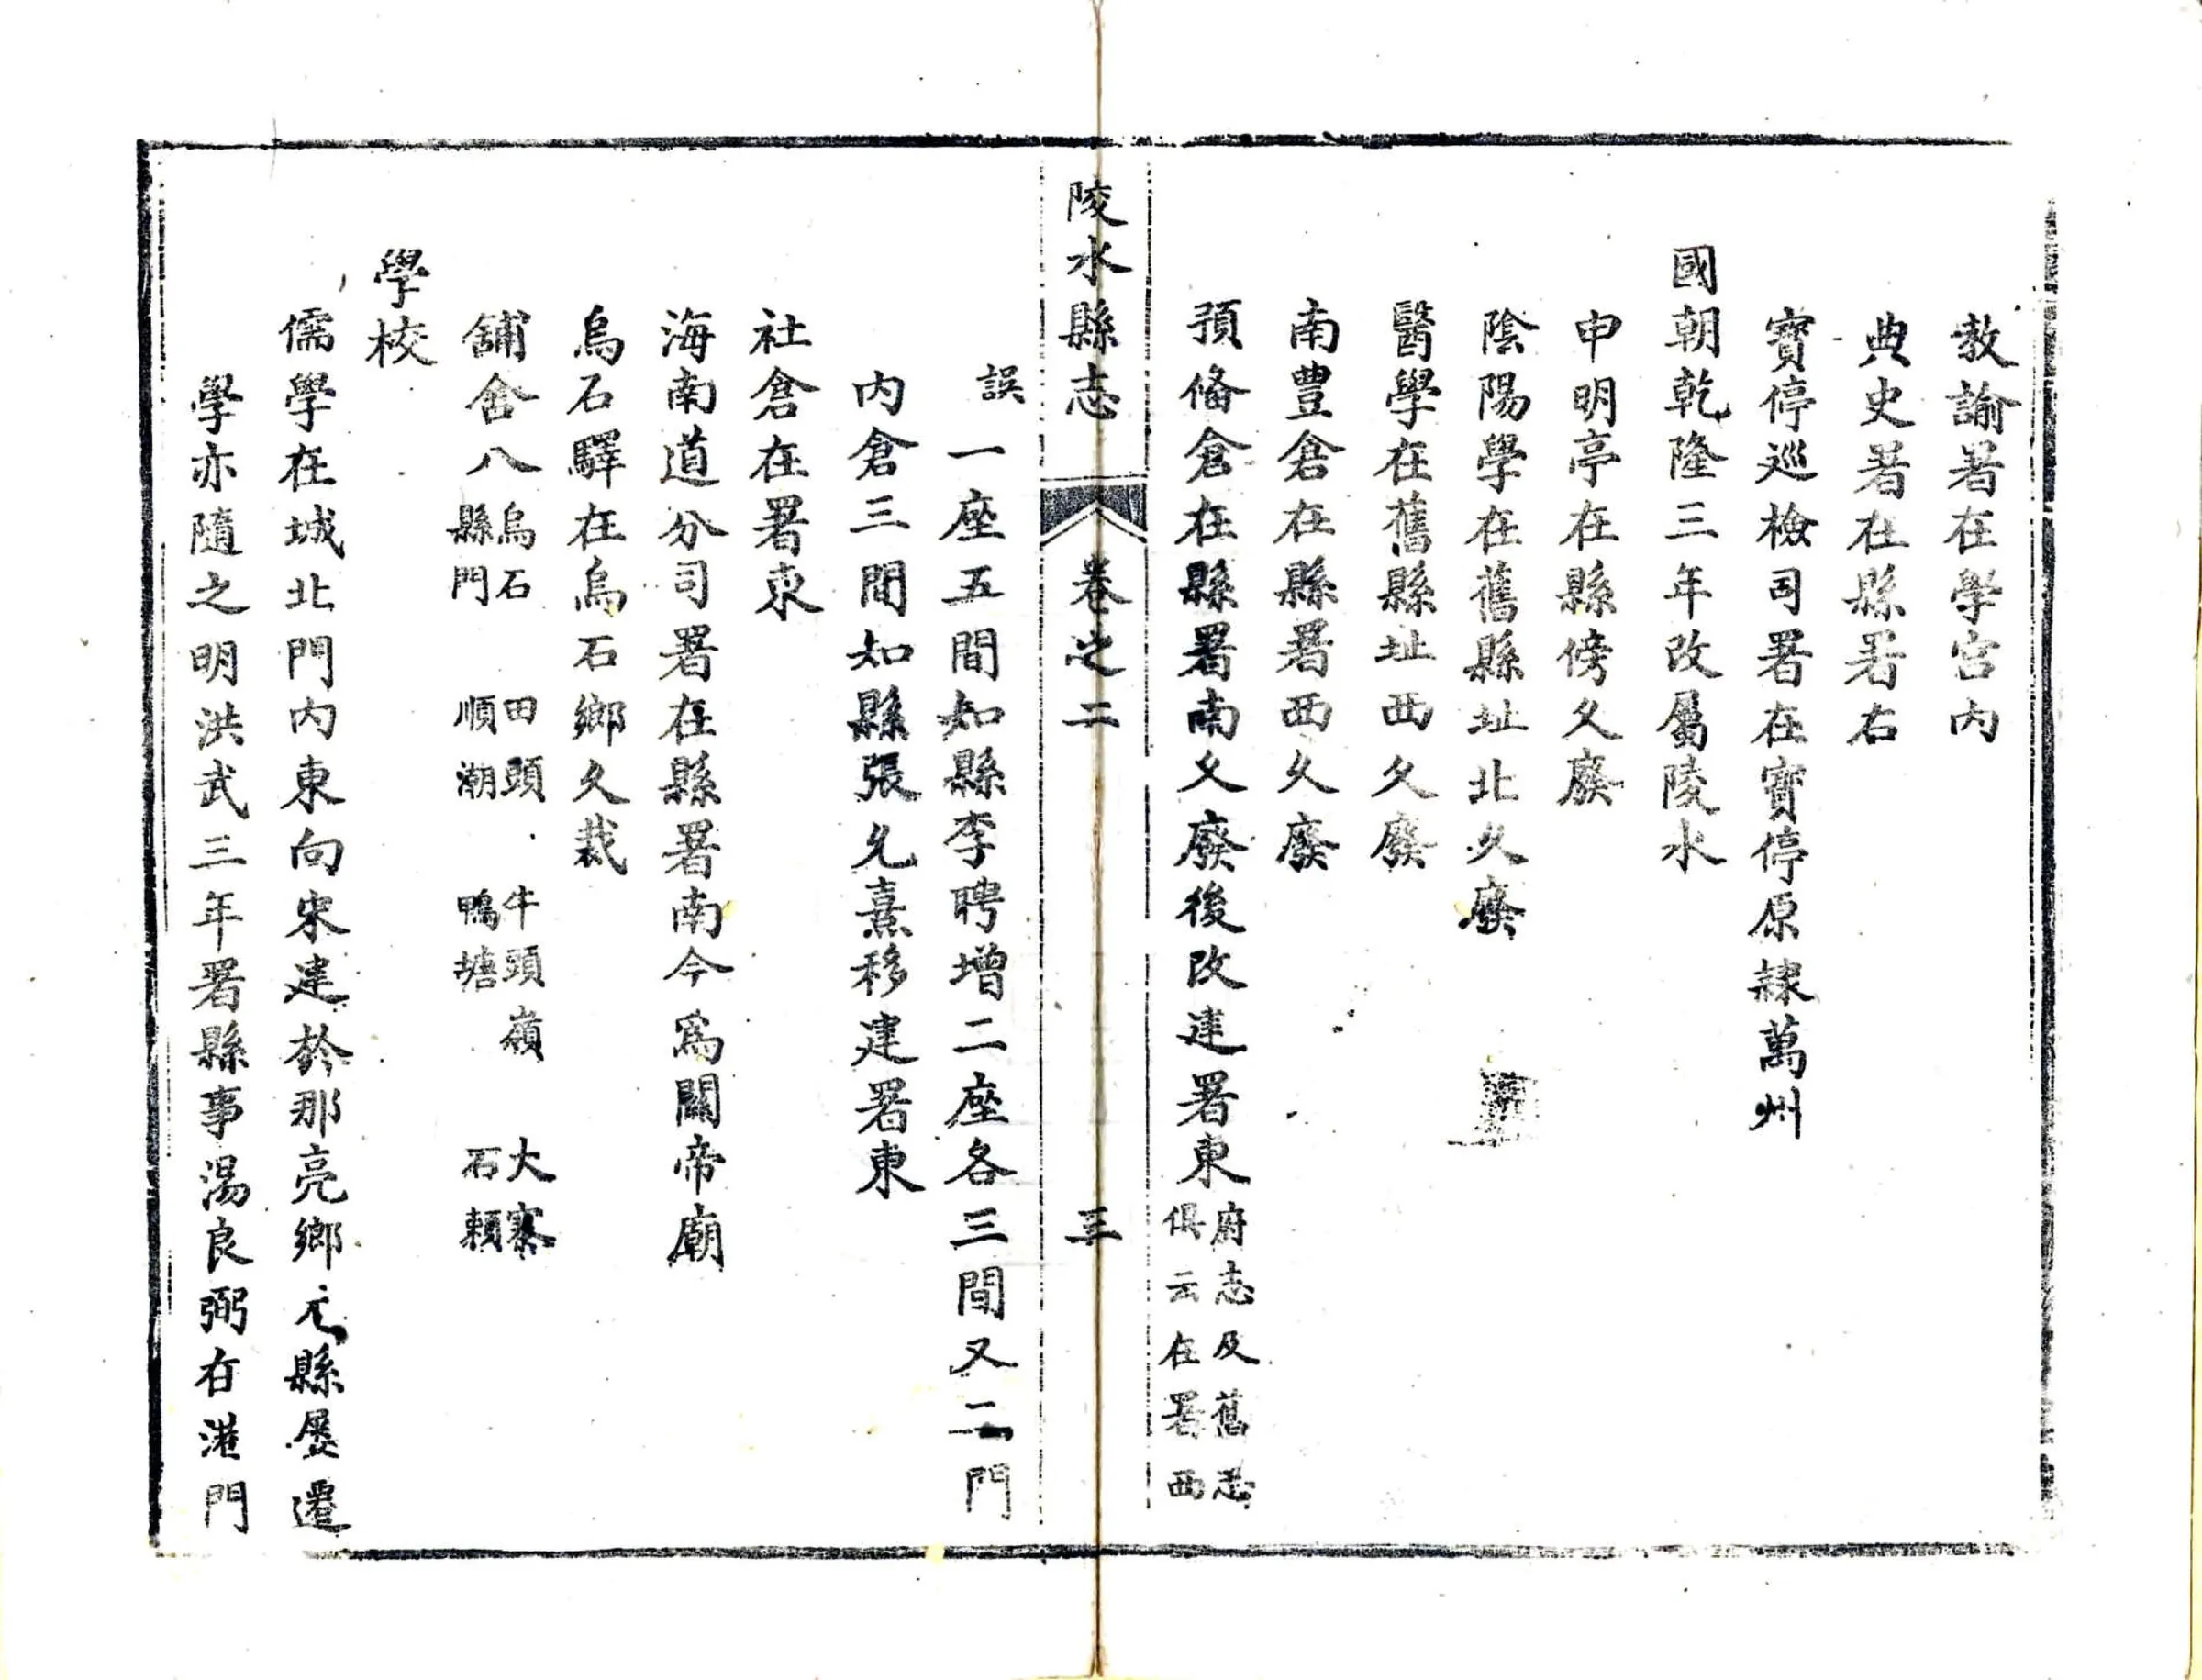 教諭署在學宮內
典史署在縣署右
寳停巡檢司署在寳停原隷萬州
國朝乾隆三年改屬陵水
申明亭在縣傍久廢
陰陽學在舊縣址北久廢
醫學在舊縣址西久廢
南豊倉在縣署西久廢
預偹倉在縣署南久廢後改建署東府志及舊志俱云在署西
陵水縣志 卷之二 三
誤 一座五間知縣李聘增二座各三間又二門
內倉三間知縣張允熹移建署東
社倉在署東
海南道分司署在縣署南今爲關帝廟
烏石驛在烏石鄉久裁
舖舍八烏石 田頭 牛頭嶺 大寨 縣門 順潮 鴨塘 石賴
學校
儒學在城北門內東向宋建於那亮鄉元縣屡遷
學亦隨之明洪武三年署縣事湯良弼在港門